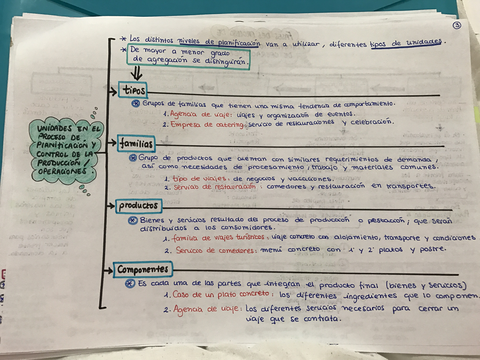 3
* Los distintos niveles de planificación van a utilizar, diferentes tipos de unidades.
* De mayor a menor grado
de agregación se distinguirán.
UNIDADES EN EL
PROCESO DE
PLANIFICACIÓN Y
CONTROL DE LA
PRODUCCIÓN /
OPERACIONES
tipos
* Grupos de familias que tienen una misma tendencia de comportamiento.
1. Agencia de viaje: viajes y organización de eventos.
2. Empresa de catering: servicio de restauraciones y celebración.
familias
* Grupo de productos que cuentan con similares requerimientos de demanda,
así como necesidades de procesamiento, trabajo y materiales comunes.
1. tipo de viajes: de negocios y vacaciones.
2. Servicio de restauración: comedores y restauración en transportes.
productos
* Bienes y servicios resultado del proceso de producción o prestación, que serán
distribuidos a los consumidores.
1. familia de viajes turísticos: viaje concreto con alojamiento, transporte y condiciones
2. Servicio de comedores: menú concreto con 1º y 2º platos y postre.
Componentes
* Es cada una de las partes que integran el producto final (bienes y servicios)
1. Caso de un plato concreto: los diferentes ingredientes que lo componen.
2. Agencia de viaje: los diferentes servicios necesarios para cerrar un
viaje que se contrata.